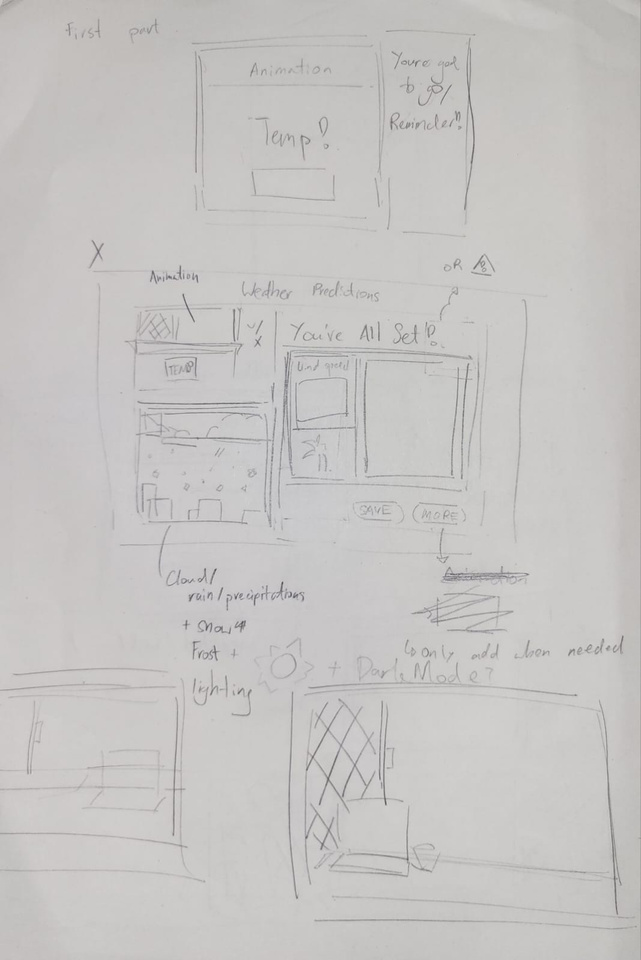 First part
Animation
Temp!
You're god
to go/
Reminder!!
X
OR
Animation
Weather Predictions
✓/
X
You've All Set!
TEMP
Wind speed
SAVE
MORE
Animation
Cloud/
rain/precipitations
+ snow
Frost +
lighting
↳ only add when needed
+ Dark Mode?